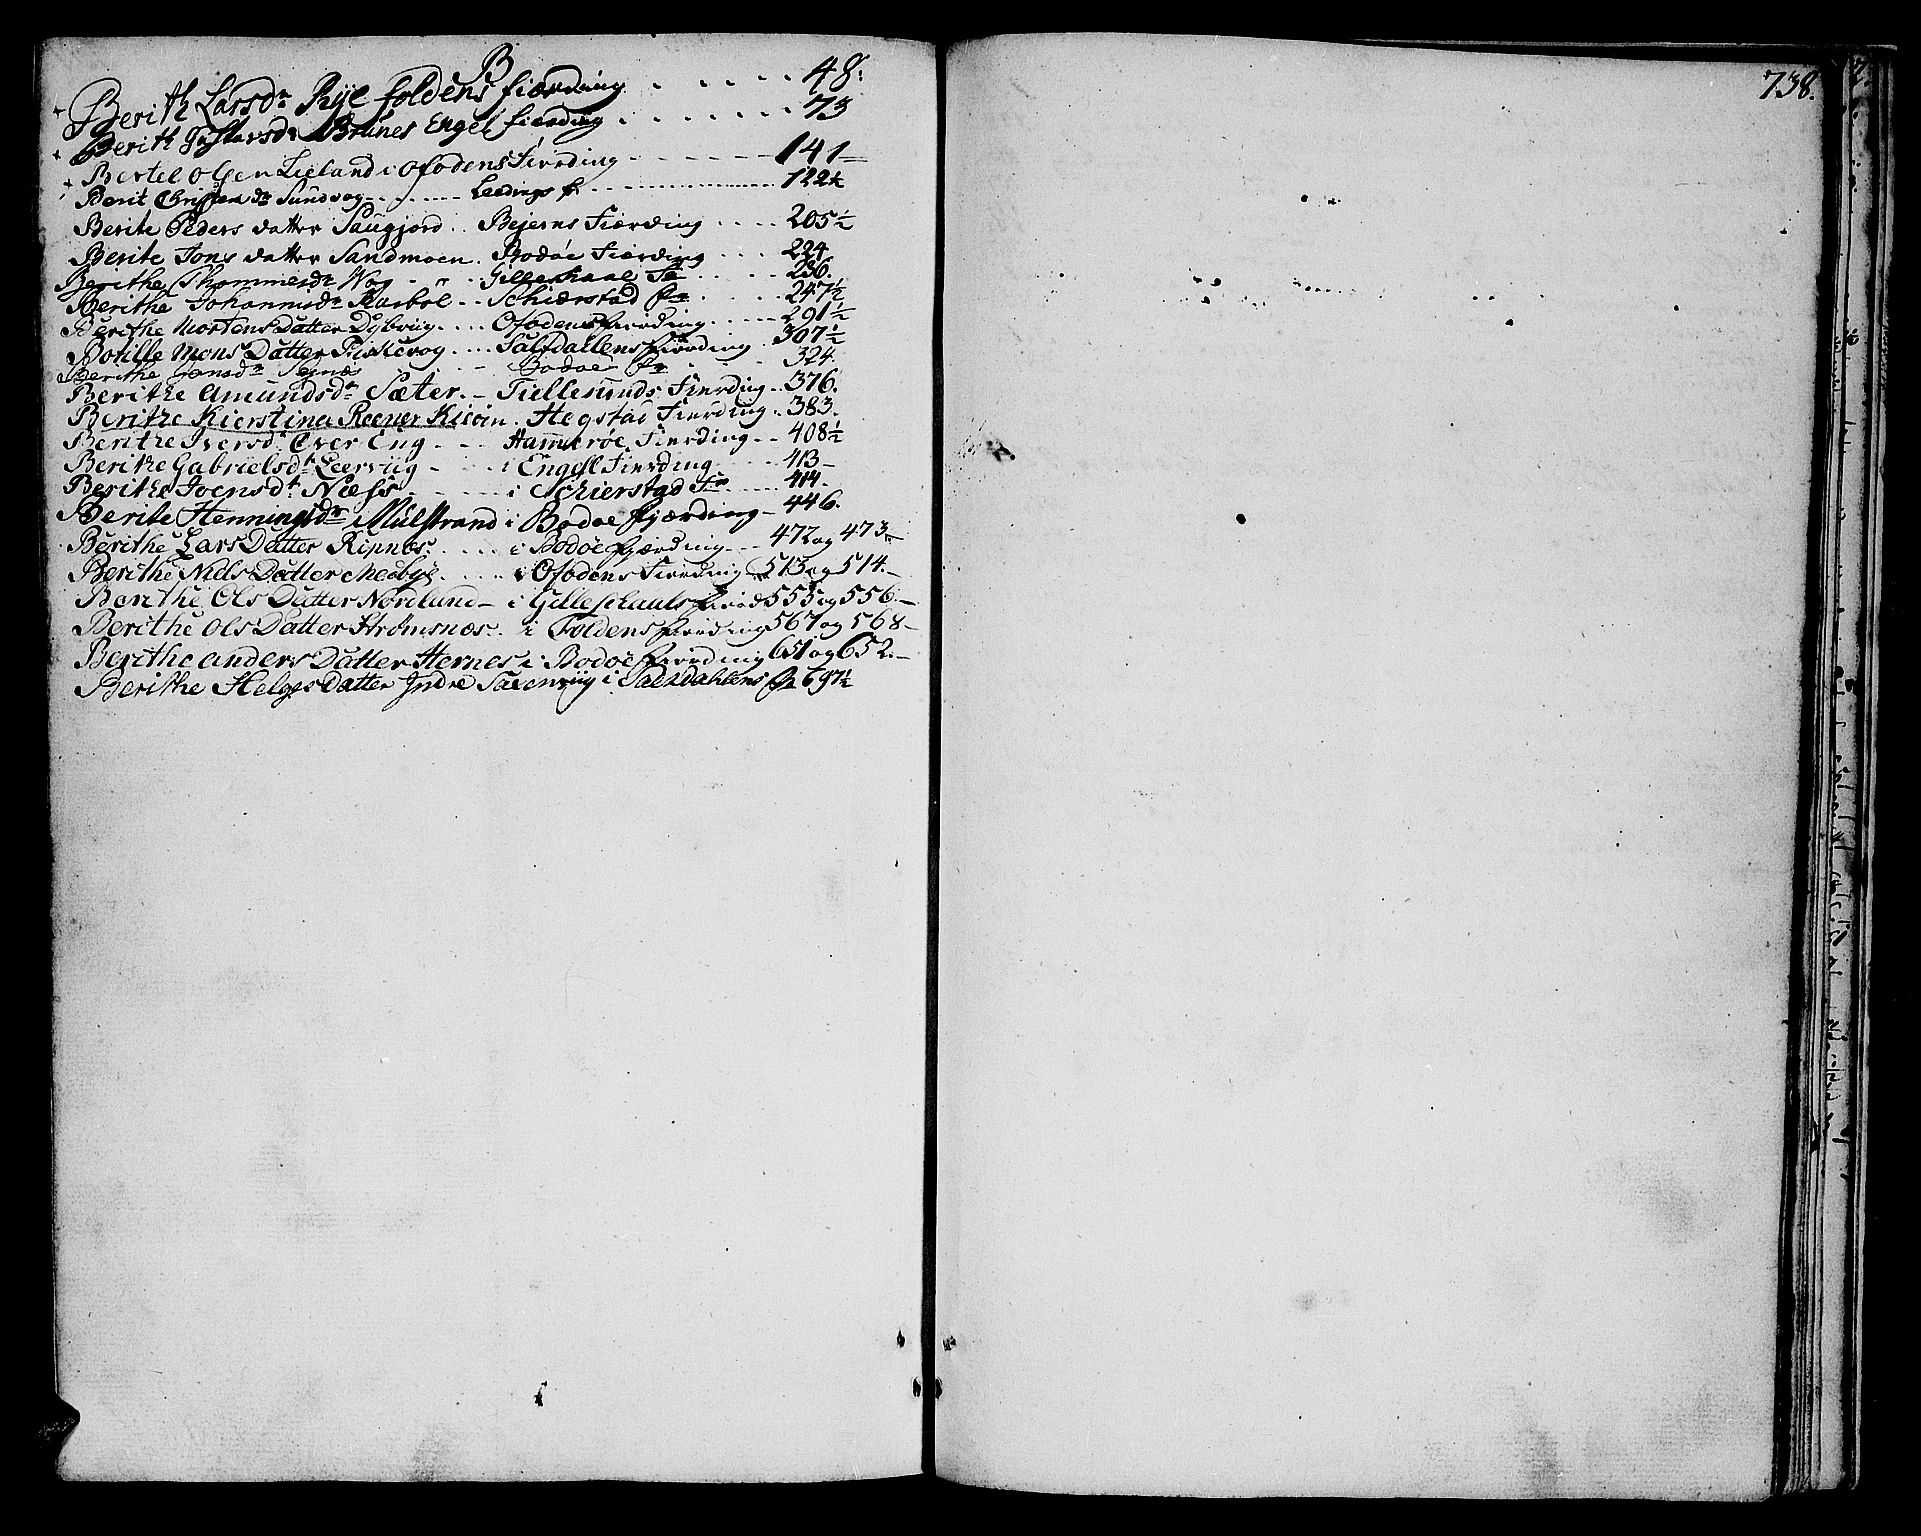 B
+ Berith Larsdr Rye foldens fiærding . . . . . 48.
+ Berith Gustavsdr Brunes Engel fiærding . . . . . . . 73
+ Bertel Olsen Lieland i Ofodens Fierding - - - - - 141 -
Berit Christensdr Sundvog - - - Leedings f. - - - 122½
Berite Peders datter Saugjord .. Bejerns Fiærding . . . . 205½
Berite Jons datter Sandmoen . Bodøe Fiærding . . . . 224
Berithe Thommesdr Wog - - - Gilleskaal Fr . . . . . 236.
Berithe Johannisdr - - Schiærstad Fr . . . . . 247½
Berithe Mortens Datter Dybviig . . . . Ofodens fierding . . . . . 291½
Botille Mons Datter Fiskevog . . . . Saltdallens fierding . 307½
Berithe Jonsdr - - Bodøe Fr . . . . 324.
Berithe Amundsdr Sæter . - Tiellesunds Fierding .. 376.
Berithe Kierstina Reener Kieøin . Hegstad Fierding .. 383.
Berithe Iversdr Øver Eng - - - Hammerøe Fierding - - 408½
Berithe Gabrielsdr Leerviig - - - i Engel Fierding - - - 413 -
Berithe Joensdr Næss - - - i Schierstad Fr . . . . . 414 -
Berite Henningsdr Mulstrand i Bodøe fjærding - 446.
Berithe Lars Datter Ripnæs . . . . . i Bodøe fjærding - - - 472 og 473 -
Berithe Niels Datter Medbye . . . . . i Ofodens Fierding 513 og 514 -
Berithe Ols Datter Nordlund - i Gilleschaals fierd 555 og 556 -
Berithe Ols Datter Strømsnæs . i Foldens fierding 567 og 568 -
Berithe Anders Datter Hernes i Bodøe fierding 651 og 652 -
Berithe Helges Datter Indre i Saltdahlens Fr 697½
738.